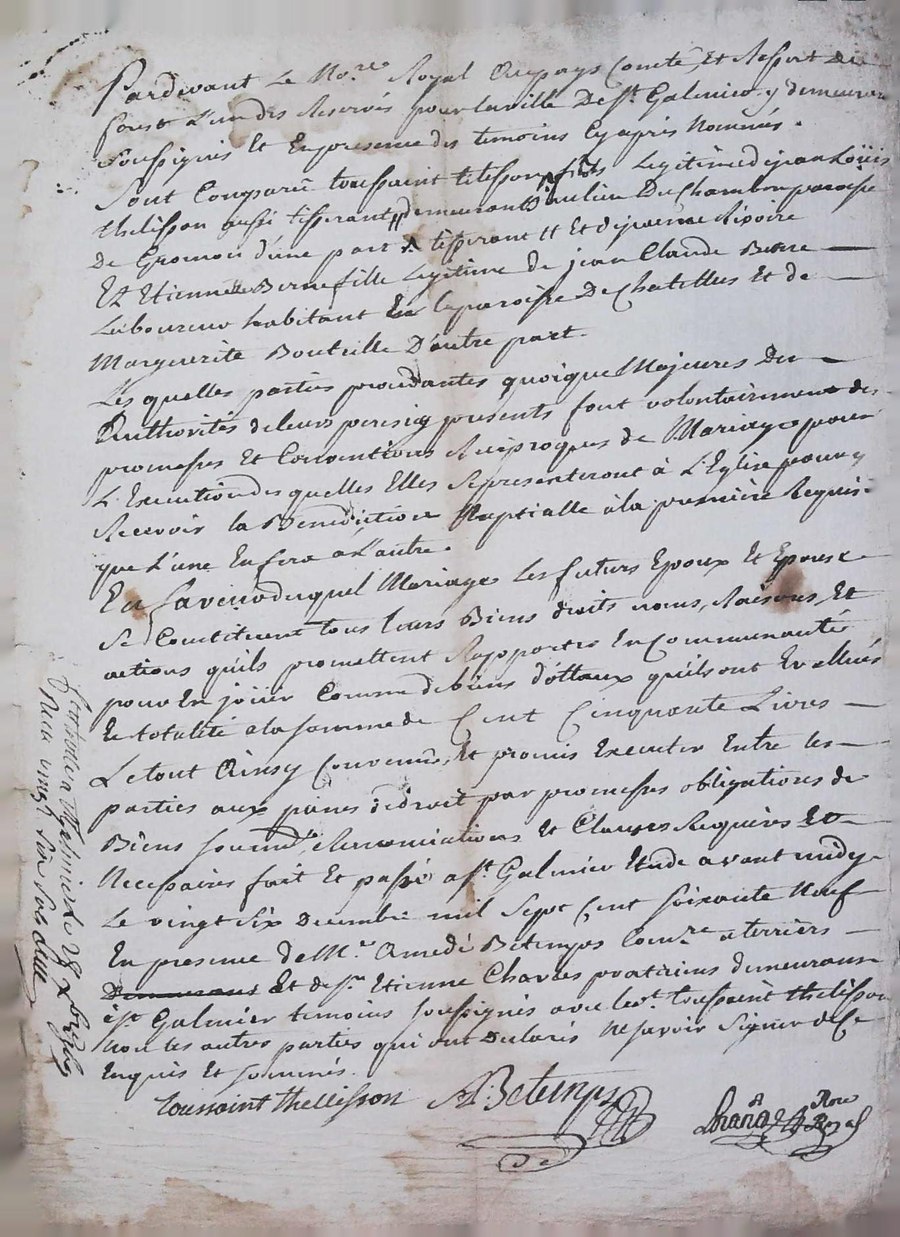 Pardevant Le No.re Royal Aupays Comté Et Ressort de
forest L'un des Reservés pour la ville De st. Galmier y demeurant
soussignés Et En presence des temoins Cyaprès Nommés.
Sont Comparû toussaint telisson fils Legitime de jean Loüis
thelisson aussi tisserant demeurants au lieu Du Chambon paroisse
De Gramon d'une part tisserant Et de jeanne Rivoire
Et Etiennette Berne fille Legitime de jean Claude Berne
Laboureur habitant En la paroisse De Chatellus Et de
Marguerite Bouteille D'autre part.
Les quelles parties procedantes quoique Majeures De
L'authorités de leurs peres icy presents font volontairement des
promesses Et Conventions Reciproques de Mariage pour
L'Execution des quelles Elles se presenteront à L'Eglise pour y
Recevoir la Benediction Nuptialle à la première Requis.
que L'une En fera à L'autre.
En faveur duquel Mariage Les futurs Epoux Et Epouse
se Constituent tous leurs Biens droits noms, Raisons, Et
actions qu'ils promettent Rapporter En Communauté
pour En joüir Comme de biens dottaux qu'ils ont Evallués
En totalité a la somme de Cent Cinquante Livres
Le tout Ainsy Convenu, Et promis Executer Entre les
parties aux peines de droit par promesses obligations de
Biens Renonciations Et Clauses Requises Et
Necessaires fait Et passé a st. Galmier Etude avant midy
Le vingt six Decembre mil sept Cent soixante Neuf
En presence De M.e Amedé Betemps Com.re a terriers
Demeurans Et de sr. Etienne Charles praticiens demeurans
à st. Galmier temoins soussignés avec led.t toussaint thelisson
Non les autres parties qui ont Declarés Ne savoir signer de Ce
Enquis Et sommés.
toussaint thellisson A. Betemps
Royal
Galmier Le 28
Reçu vingt six sols